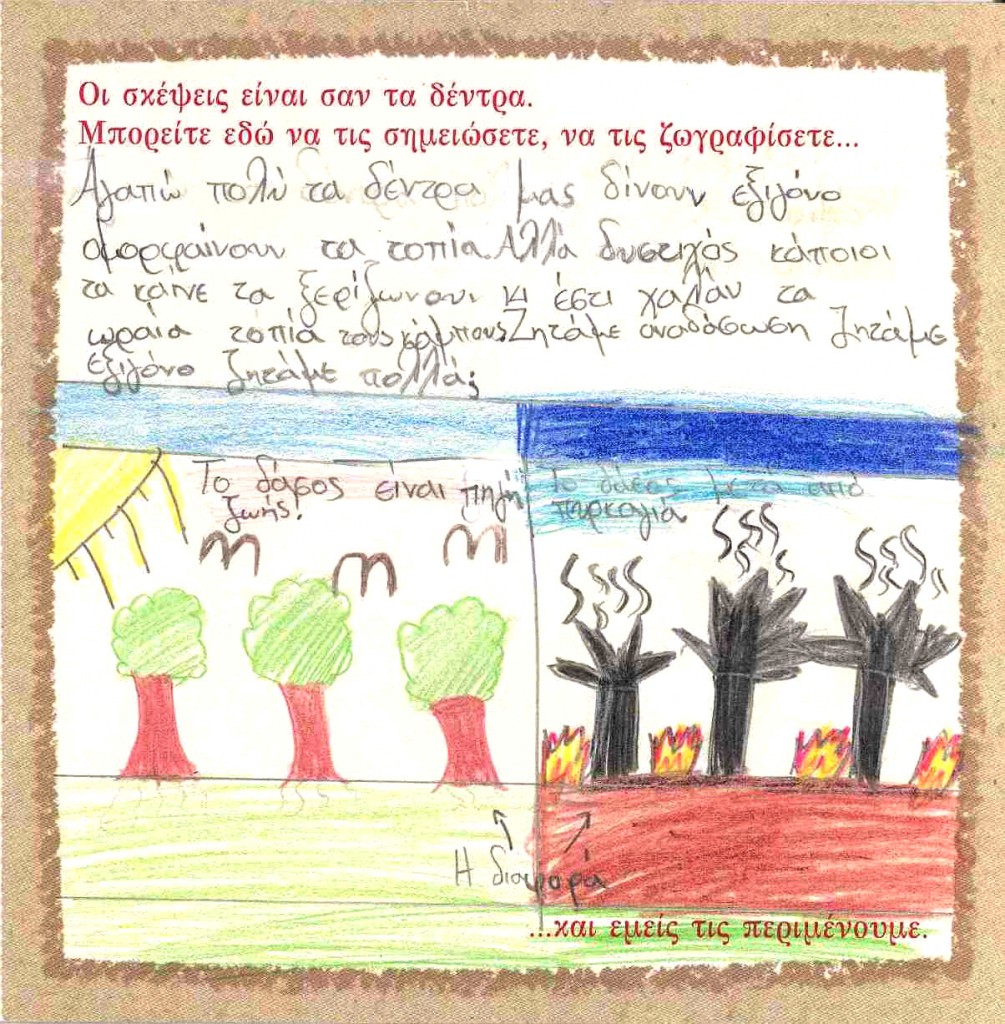 Οι σκέψεις είναι σαν τα δέντρα.
Μπορείτε εδώ να τις σημειώσετε, να τις ζωγραφίσετε...
Αγαπώ πολύ τα δέντρα μας δίνουν εξιγόνο
ομορφαίνουν τα τοπία. Αλλά δυστιχός κάποιοι
τα κάινε τα ξερίζωνουν κι έστι χαλάν τα
ωραία τοπία τους κάμπους. Ζητάμε αναδάσωση ζητάμε
εξιγόνο ζητάμε πολλά;
Το δάσος είναι πηγή
ζωής!
Το δάσος μετά από
πυρκαγιά
Η διαφορά
...και εμείς τις περιμένουμε.